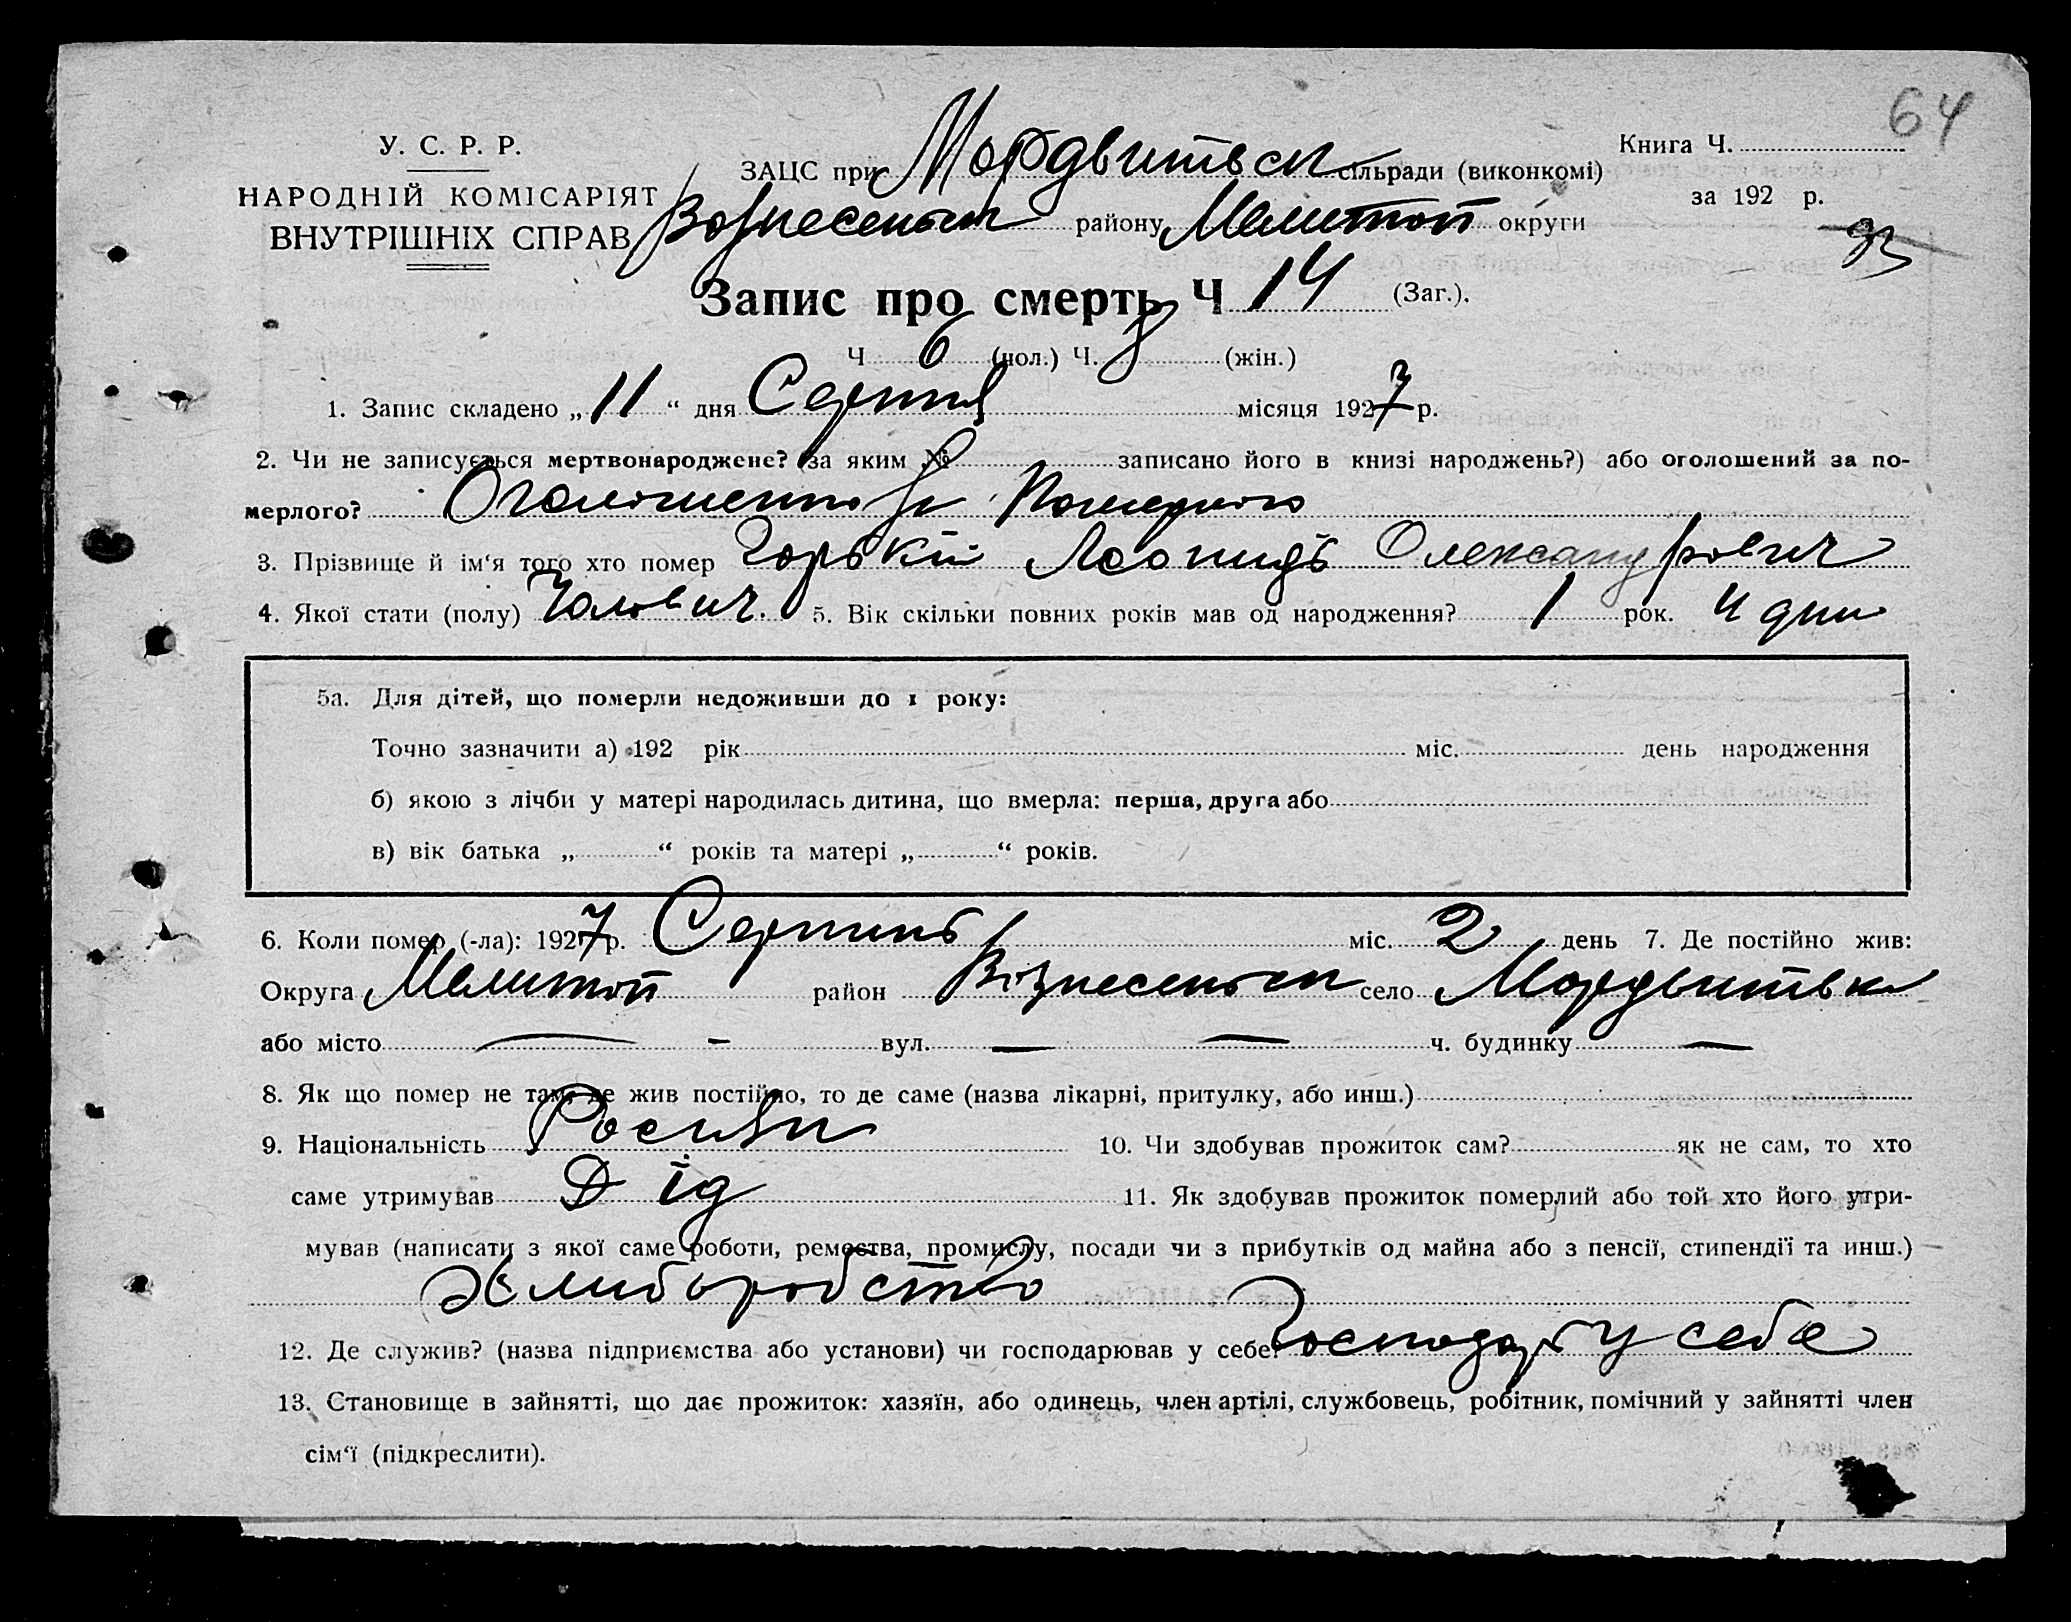 64
У. С. Р. Р.
НАРОДНІЙ КОМІСАРІЯТ
ВНУТРІШНІХ СПРАВ
ЗАЦС при Мордвитвск сільради (виконкомі)
Вознесенськ району Мелитоп округи
Книга Ч.
за 192 р.
Запис про смерть Ч 14 (Заг.).
Ч 6 (чол.) Ч. 8 (жін.)
1. Запис складено „ 11 “ дня Серпня місяця 1927 р.
2. Чи не записується мертвонароджене? (за яким № записано його в книзі народжень?) або оголошений за по-
мерлого? Оголошено за Померлого
3. Прізвище й ім‘я того хто помер Горькій Леонидъ Олександрович
4. Якої стати (полу) Чолович. 5. Вік скільки повних років мав од народження? 1 рок. 4 дни
5а. Для дітей, що померли недоживши до 1 року:
Точно зазначити а) 192 рік міс. день народження
б) якою з лічби у матері народилась дитина, що вмерла: перша, друга або
в) вік батька „ “ років та матері „ “ років.
6. Коли помер (-ла): 1927 р. Серпинь міс. 2 день 7. Де постійно жив:
Округа Мелитоп район Вознесенськ село Мордвитвк
або місто — - вул. — — ч. будинку —
8. Як що помер не там, де жив постійно, то де саме (назва лікарні, притулку, або инш.)
9. Національність Росиян 10. Чи здобував прожиток сам? як не сам, то хто
саме утримував Дід 11. Як здобував прожиток померлий або той хто його утри-
мував (написати з якої саме роботи, ремества, промислу, посади чи з прибутків од майна або з пенсії, стипендії та инш.)
Хлиборобство
12. Де служив? (назва підприємства або установи) чи господарював у себе? Господар у себе
13. Становище в зайнятті, що дає прожиток: хазяїн, або одинець, член артілі, службовець, робітник, помічний у зайнятті член
сім‘ї (підкреслити).